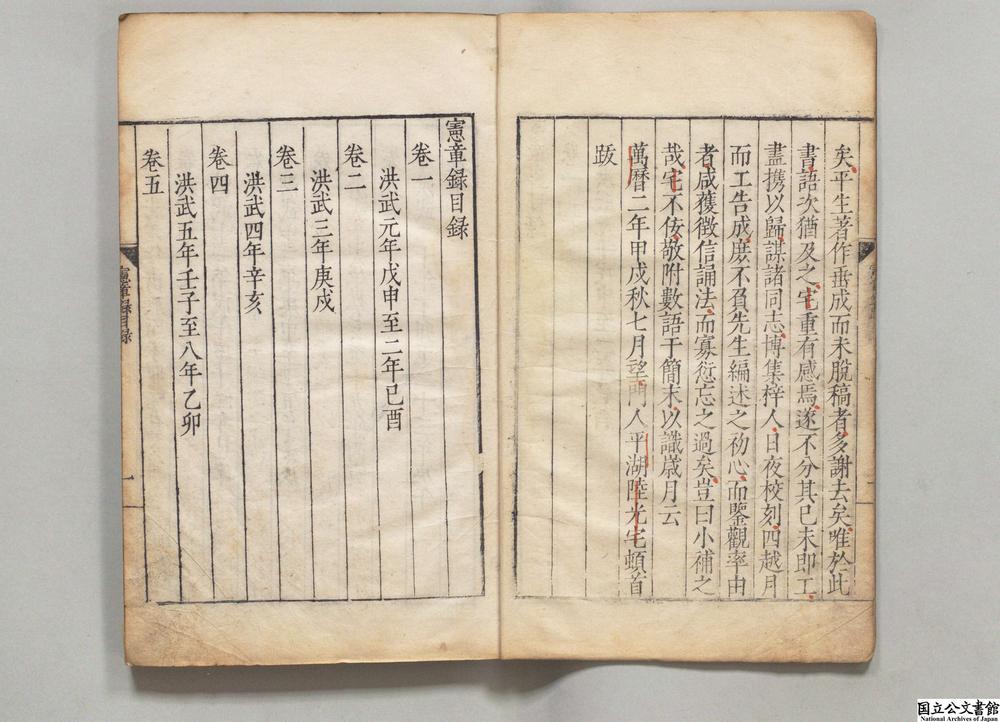 矣平生著作垂成而未脫稿者多謝去矣唯於此
書語次猶及之宅重有感焉遂不分其已未即工
盡携以歸謀諸同志博集梓人日夜校刻四越月
而工告成庶不負先生編述之初心而鑒觀率由
者咸獲徵信誦法而寡愆忘之過矣豈曰小補之
哉宅不佞敬附數語于簡末以識歲月云
萬曆二年甲戌秋七月望門人平湖陸光宅頓首
跋
憲章錄目錄
卷一
洪武元年戊申至二年己酉
卷二
洪武三年庚戌
卷三
洪武四年辛亥
卷四
洪武五年壬子至八年乙卯
卷五
憲章錄目錄
一
国立公文書館
National Archives of Japan